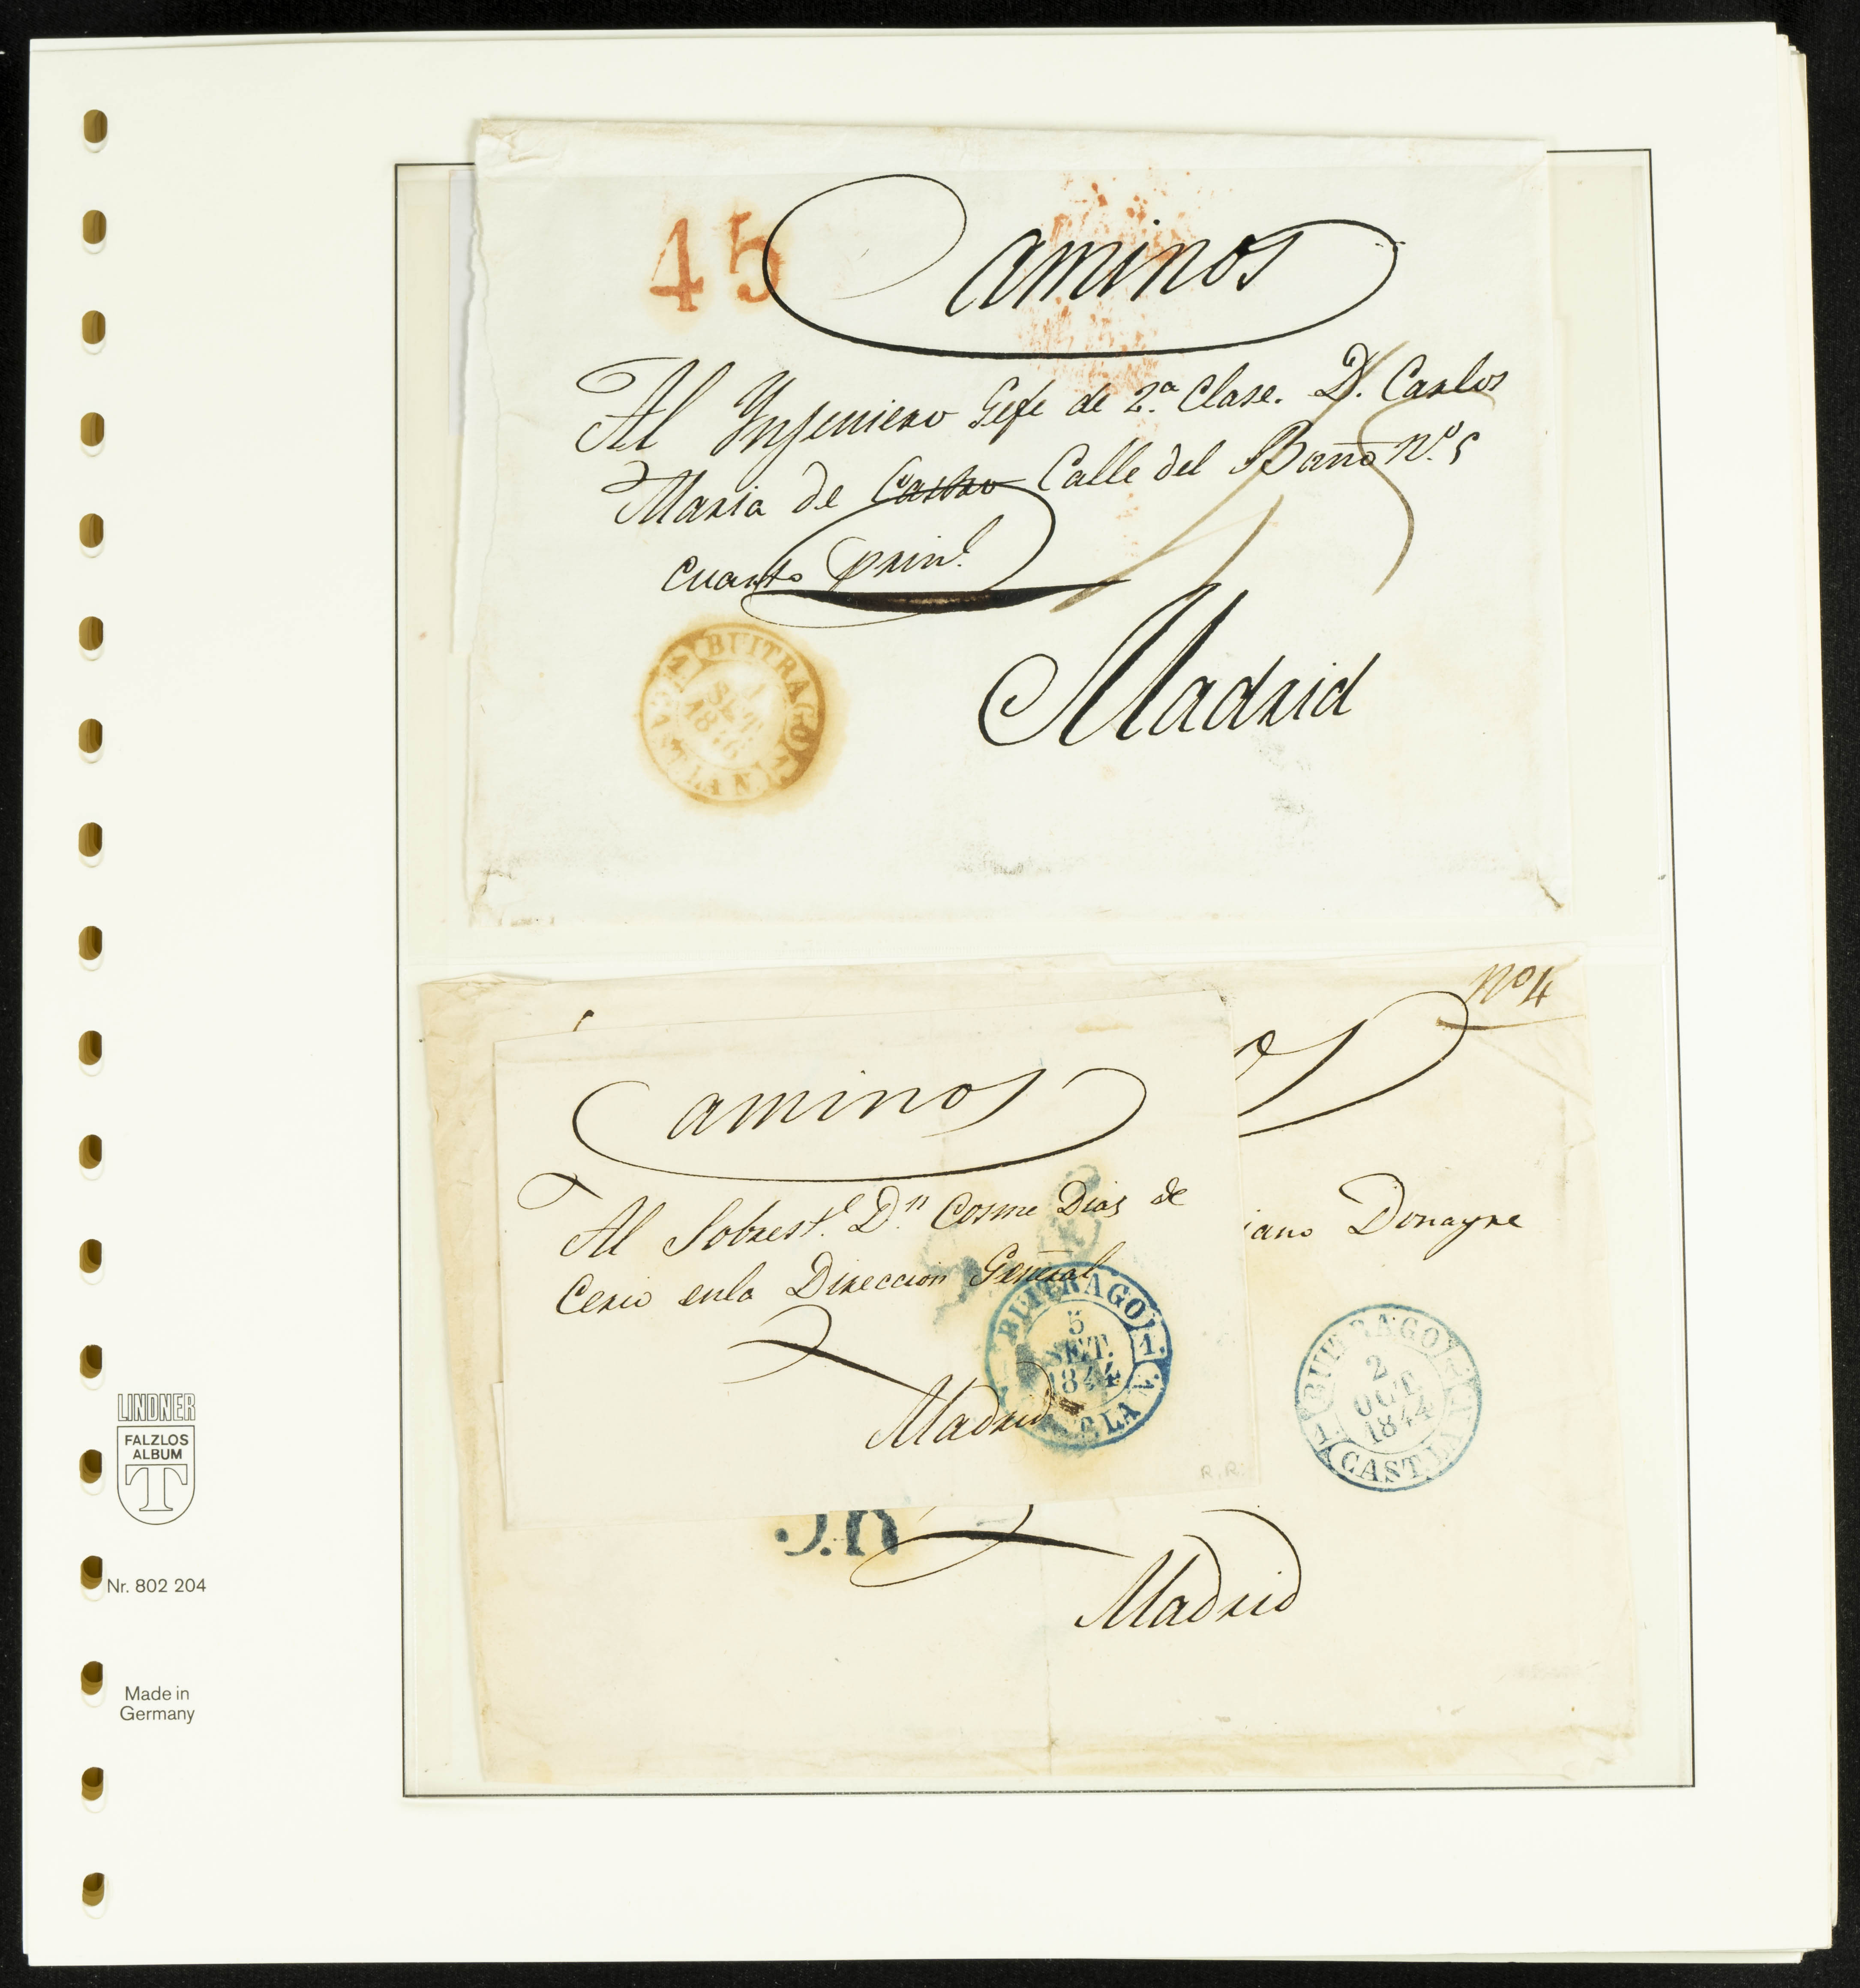 45
Caminos
Al Ynjeniero Gefe de 2.ª Clase. D. Carlos
Maria de Castro Calle del Baño Nº. 5
cuarto prinl.
BUITRAGO
1 SET.
CAST.LA N.
Madrid
Nº 4
Caminos
Al Sobrest.e D.n Cosme Dias de
Cerio en la Direccion General
Madrid
BUITRAGO 1.
5
SET.
1844
LA N.
R.R.
os
iano Donayre
BUITRAGO
2
OCT.
1844
1.
CAST.LA
Madrid
LINDNER
FALZLOS
ALBUM
T
Nr. 802 204
Made in
Germany